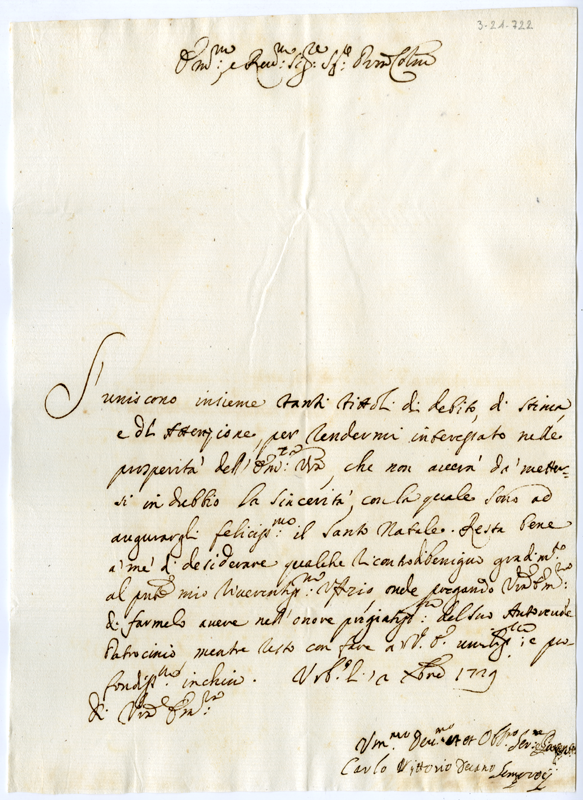 3-21-722
Em.mo e Rev.mo Sig.re Sig.re Pron Colmo
S'uniscono insieme tanti tittoli di debito, di stima
e di Attenzione, per rendermi interessato nelle
prosperità dell'Em.za Vra, che non avverà da' metter-
si in dubbio la sincerità, con la quale sono ad
augurargli feliciss.mo il Santo Natale. Resta bene
a' me' di desiderare qualche riscontro di benigno gradim.to
al pnte mio riverentiss.mo Uffizio onde pregando Vra Em.za
di farmelo avere nell'onore pregiatiss.mo del suo Autorevole
Patrocinio mentre resto con fare a V. E. umiliss.mo, e pro-
fondiss.mo inchino. Urb.o li 12 Xbre 1729
di Vra Em.za
Um.mo Dev.mo et Obb.mo Ser.re
Carlo Vittorio Decano Semprovij